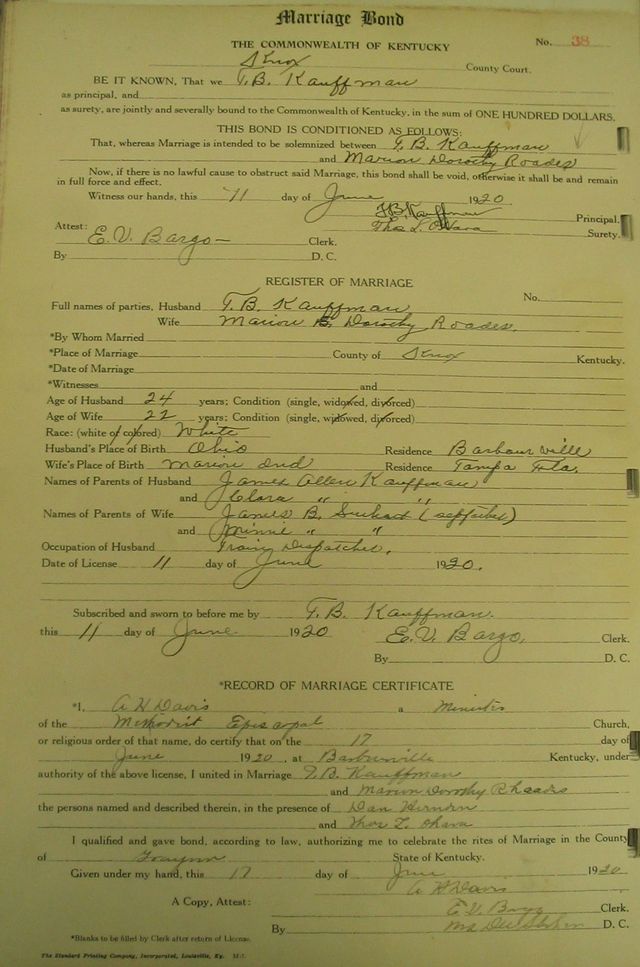 Marriage Bond
THE COMMONWEALTH OF KENTUCKY No. 38
Knox County Court.
BE IT KNOWN, That we T. B. Kauffman
as principal, and
as surety, are jointly and severally bound to the Commonwealth of Kentucky, in the sum of ONE HUNDRED DOLLARS.
THIS BOND IS CONDITIONED AS FOLLOWS:
That, whereas Marriage is intended to be solemnized between T. B. Kauffman
and Marion Dorothy Roades
Now, if there is no lawful cause to obstruct said Marriage, this bond shall be void, otherwise it shall be and remain
in full force and effect.
Witness our hands, this 11 day of June 1920
T. B. Kauffman Principal.
Attest: Thos L. O'Hara Surety.
E. V. Bargo Clerk.
By D. C.
REGISTER OF MARRIAGE
No.
Full names of parties, Husband T. B. Kauffman
Wife Marion Dorothy Roades.
*By Whom Married
*Place of Marriage County of Knox Kentucky.
*Date of Marriage
*Witnesses and
Age of Husband 24 years; Condition (single, widowed, divorced)
Age of Wife 22 years; Condition (single, widowed, divorced)
Race: (white or colored) White
Husband's Place of Birth Ohio Residence Barbourville
Wife's Place of Birth Marion Ind Residence Tampa Fla.
Names of Parents of Husband James Allen Kauffman
and Clara " "
Names of Parents of Wife James B. (stepfather)
and Minnie " "
Occupation of Husband Train Dispatcher.
Date of License 11 day of June 1920.
Subscribed and sworn to before me by T. B. Kauffman.
this 11 day of June 1920 E. V. Bargo, Clerk.
By D. C.
*RECORD OF MARRIAGE CERTIFICATE
*I, A H Davis a Minister
of the Methodist Episcopal Church,
or religious order of that name, do certify that on the 17 day of
June 1920, at Barbourville Kentucky, under
authority of the above license, I united in Marriage T. B. Kauffman
and Marion Dorothy Rhoades
the persons named and described therein, in the presence of Dan
and Thos L. Ohara
I qualified and gave bond, according to law, authorizing me to celebrate the rites of Marriage in the County
of State of Kentucky.
Given under my hand, this 17 day of June 1920
A H Davis
A Copy, Attest: E. V. Bargo Clerk.
By D. C.
*Blanks to be filled by Clerk after return of License.
The Standard Printing Company, Incorporated, Louisville, Ky.